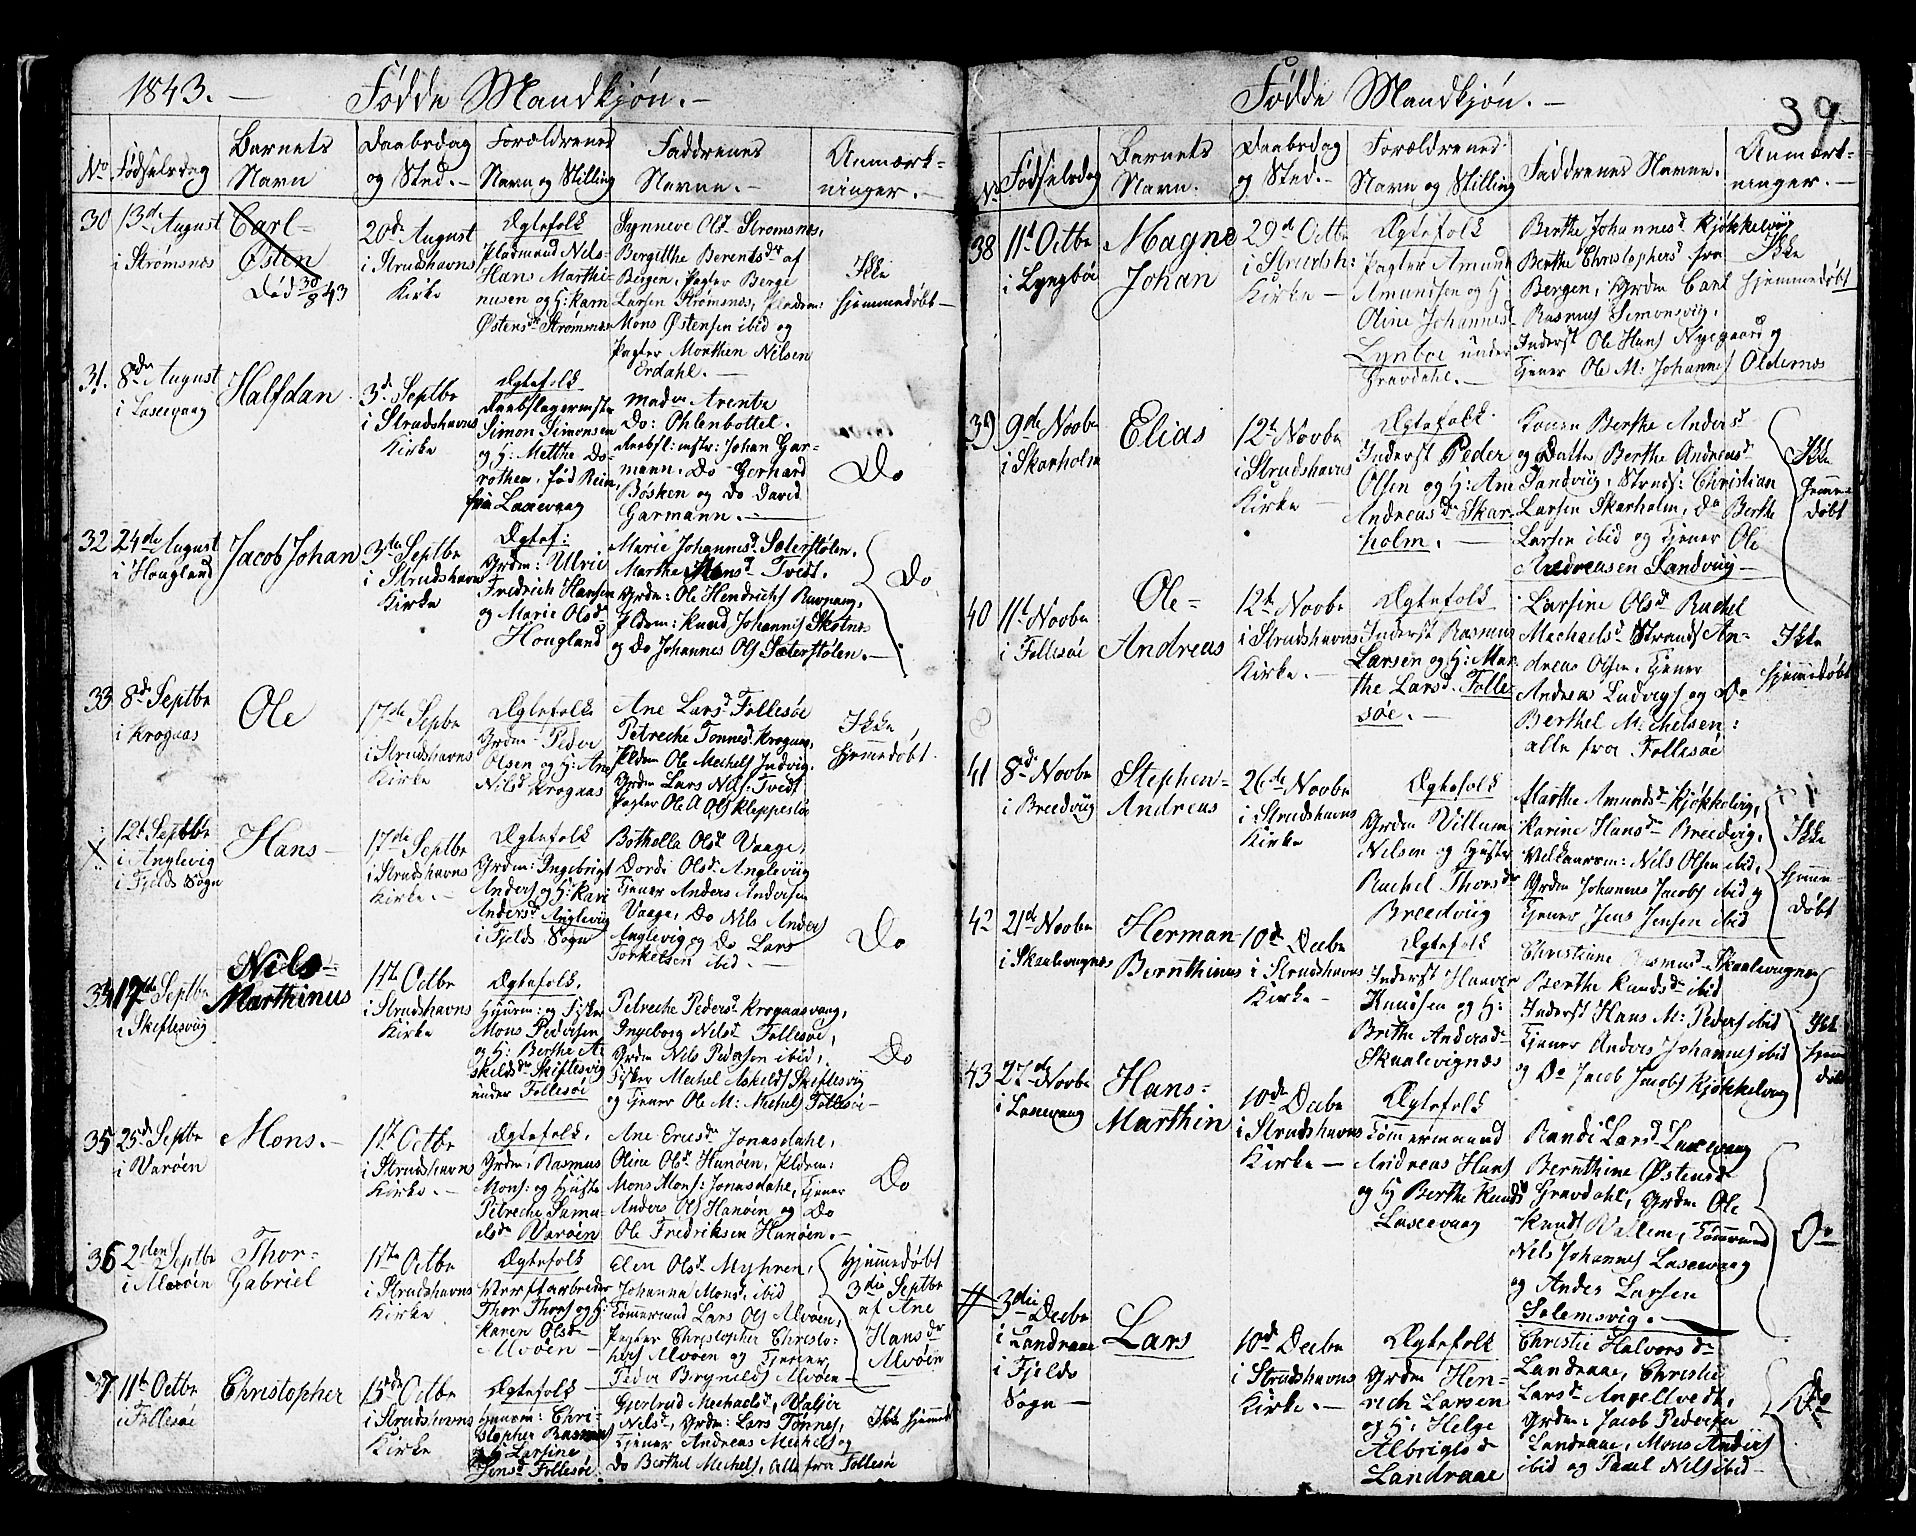 1843. — Fødde Mandkjøn. —
No Fødselsdag
Barnets Navn
Daabsdag og Sted. —
Forældrenes Navn og Stilling
Faddrenes Navne. —
Anmærkninger. —
30
13de August
i Strømsnes
Carl Østen
Død 30/8 43
20de August
i Strudshavns
Kirke
Ægtefolk
Pladsmand Nils
Hans Marthi-
nusen og H: Karn
Østensdr Strømsnes
Synneve Olsd. Stromsnes,
Bergitthe Berentsdr af
Bergen, Pagter Berge
Larsen Strømsnes,
Mons Østensen ibid og
Pagter Morthen Nilsen
Erdahl. —
Ikke
hjemmedøbt —
31.
8de August
i Laxevaag
Halfdan
3de Septbr
i Strudshavns
Kirke
Ægtefolk
Simon Simonsen
og H: Metthe Do-
rothea, fød Rein,
fra Laxevaag
Madm Arentz
Do: Ohlenbottel.
Johan Gar-
mann. Do Gerhard
Bøsken og Do David
Garmann. —
Do
32
24de August
i Hougland
Jacob Johan
3die Septbr
i Strudshavns
Kirke
Ægtef:
Grdm: Ulric
Fredrich Hansen
og Marie Olsdr
Hougland
Marie Johannesd. Sæterstølen.
Marthe Monsd. Tvedt.
Grdm: Ole Hendrichs
Pldm: Knud Johannes Skotnes
og Do Johannes Ols Sæterstølen. —
Do
33
8de Septbr
i Krogaas
Ole
17de Septbr
i Strudshavns
Kirke
Ægtefolk
Grdm: Peder
Olsen og H: Ane
Nilsd Krogaas
Ane Larsd. Follesøe
Petreche Tonnesd. Krogaas,
Pldm Ole Mechels Indvig.
Grdm Lars Nils: Tvedt
Pagter Ole A Ols Kleppestøe
Ikke
hjemmedøbt.
12te Septbr
i Anglevig
i Fjelds Sogn
Hans —
17de Septbr
i Strudshavns
Kirke. —
Ægtefolk
Grdm: Ingebrigt
Anders og H: Kari
Andersd. Anglevig
i Fjelds Sogn
Botholla Olsd. Vaage,
Dorde Olsd. Anglevig
Tjener Anders Andersen
Vaage, Do Nils Anders
Anglevig og Do Lars
Torkelsen ibid. —
Do
34
17de Septbr
i Skiftesviig
Nils-
Marthinus
1ste Octbr
i Strudshavns
Kirke
Ægtefolk.
Huusm: og Fisker
Mons Pedersen
og H: Berthe A-
skildsdr Skiftesvig
under Follesøe
Petreche Pedersd. Krogaasvaag,
Ingeborg Nilsd. Follesøe,
Grdm Nils Pedersen ibid,
Fisker Mechel Askilds Skiftesvig
og Tjener Ole M: Mechels Follesøe —
Do
35
25de Septbr
i Varøen
Mons. —
1ste Octbr
i Strudshavns
Kirke. —
Ægtefolk.
Grdm: Rasmus
Mons: og Hustr
Petreche Samu-
elsdr Varøen
Ane Ericsdr Jonasdahl,
Oline Olsd. Hanøen, Pldm:
Mons Mons: Jonasdahl, Tjener
Anders Ols Hanøen og Do
Ole Fredriksen Hanøen. —
Do
36
2den Septbr
i Alvøen
Thor-
Gabriel
1ste Octbr
i Strudshavns
Kirke
Ægtefolk
Værftarbeider
Thor Thors og H:
Karen Olsdr
Alvøen —
Elen Olsd Myhren,
Johanna Monsd. ibid
Tømmermand Lars Ols Alvøen,
Pagter Christopher Christo-
phers Alvøen og Tjener
Peder Brynilds Alvøen —
Hjemmedøbt
3die Septbr
af Ane
Hansdr
Alvøen
37
11te Octbr
i Follesøe
Christopher
15de Octbr
i Strudshavns
Kirke
Ægtefolk
Huusm: Chri-
stopher Rasmus
og H: Larsine
Jensd. Follesøe
Gjertrud Mechaelsd., Valjer
Nilsd., Grdm: Lars Tønnes,
Tjener Andreas Mechels og
Do Berthel Mechels, alle fra Follesøe
Ikke hjemmed
Fødde Mandkjøn. —
39.
No Fødselsdag
Barnets Navn.
Daabsdag og Sted. —
Forældrenes Navn og Stilling
Faddrenes Navne.
Anmærkninger. —
38
11te Octbr
i Lyngbøe
Magne
Johan
29de Octbr
i Strudsh:
Kirke —
Ægtefolk
Pagter Amund
Amundsen og H:
Oline Johannesd.
Lynboe under
Gravdahl. —
Berthe Johannesd. Kjøkkelvig
Berthe Christophersd. fra
Bergen, Grdm Carl
Rasmus Simonsviig,
Inderst Ole Hans Nyegaard og
Tjener Ole M: Johannes Oldernæs
Ikke
hjemmedøbt
39
9de Novbr
i Skarholm
Elias
12te Novbr
i Strudshavns
Kirke —
Ægtefolk
Inderst Peder
Olsen og H: Ane
Andreasdr Skar-
holm. —
Konen Berthe Andersd.
og Datter Berthe Andreasd.
Sandviig, Strands: Christian
Larsen Skarholm, Do Berthe
Larsen ibid og Tjener Ole
Andreasen Sandviig —
Ikke
hjemme-
døbt
40
11te Novbr
i Follesøe
Ole-
Andreas
12te Novbr
i Strudshavns
Kirke. —
Ægtefolk
Inderst Rasmus
Larsen og H: Mar-
the Larsd. Folle-
søe. —
Larsine Olsd. Rachel
Machaelsd. Strands An-
dreas Olsen. Tjener
Andreas Ludvigs og Do
Berthel Michelsen:
alle fra Follesøe
Ikke
hjemmedøbt
41
8de Novbr
i Breedviig
Stephen-
Andreas
26de Novbr
i Strudshavns
Kirke
Ægtefolk
Grdm Villum
Nilsen og Hustr
Rachel Thorsdr
Breedviig
Marthe Amundsdr Kjøkkelvig,
Karine Hansdr Breedvig,
Nils Olsen ibid,
Grdm Johannes Jacobs ibid og
Tjener Jens Jensen ibid
Ikke
hjemme-
døbt
42
21de Novbr
i Skaalevignæs
Herman
Bernthinus
10de Decbr
i Strudshavns
Kirke —
Ægtefolk
Inderst Haaver
Knudsen og H:
Brithe Andersdr
Skaalevignæs
Christiane Rasmusd. Skaalevignes
Berthe Knudsdr ibid
Inderst Hans M: Peders ibid
Tjener Anders Johannes ibid
og Do Jacob Jacobs Kjøkkelvig
Ikke
hjem
døbt
43
27de Novbr
i Laxevaag
Hans-
Marthin
10de Decbr
i Strudshavns
Kirke —
Ægtefolk
Tømmermand
Andreas Hans
og H Berthe Knudsd
Laxevaag
Randi Larsd. Laxevaag
Bernthine Østensdr
Gravdahl, Grdm Ole
Knuds Vallem, Tømmermd
Nils Johannes Laxevaag
og Anders Larsen
Solemsvig. —
Do
3die Decbr
i Landraae
i Fjelds
Sogn —
Lars
10de Decbr
i Strudshavns
Kirke. —
Ægtefolk
Grdm Hen-
rich Larsen
og H: Helge
Albrigtsdr
Landraae
Christie Halvorsdr
Landraae, Christie
Larsd. Angeltvedt,
Grdm: Jacob Pedersen
Landraae, Mons Anders
ibid og Paul Nils ibid —
Do